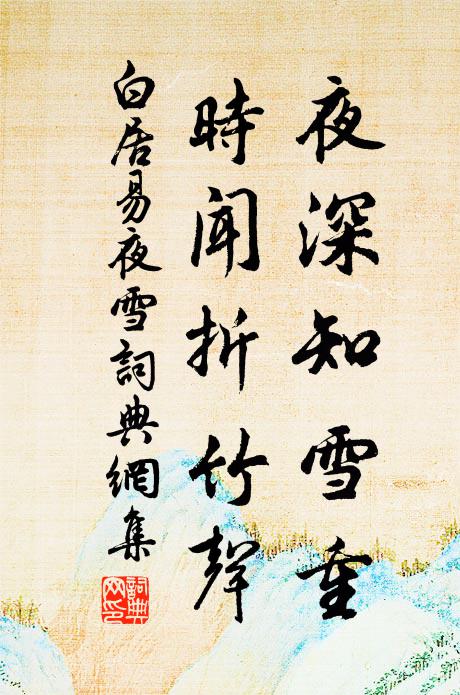 夜深知雪重
時聞折竹聲
白居易夜雪詞典網集
詞典